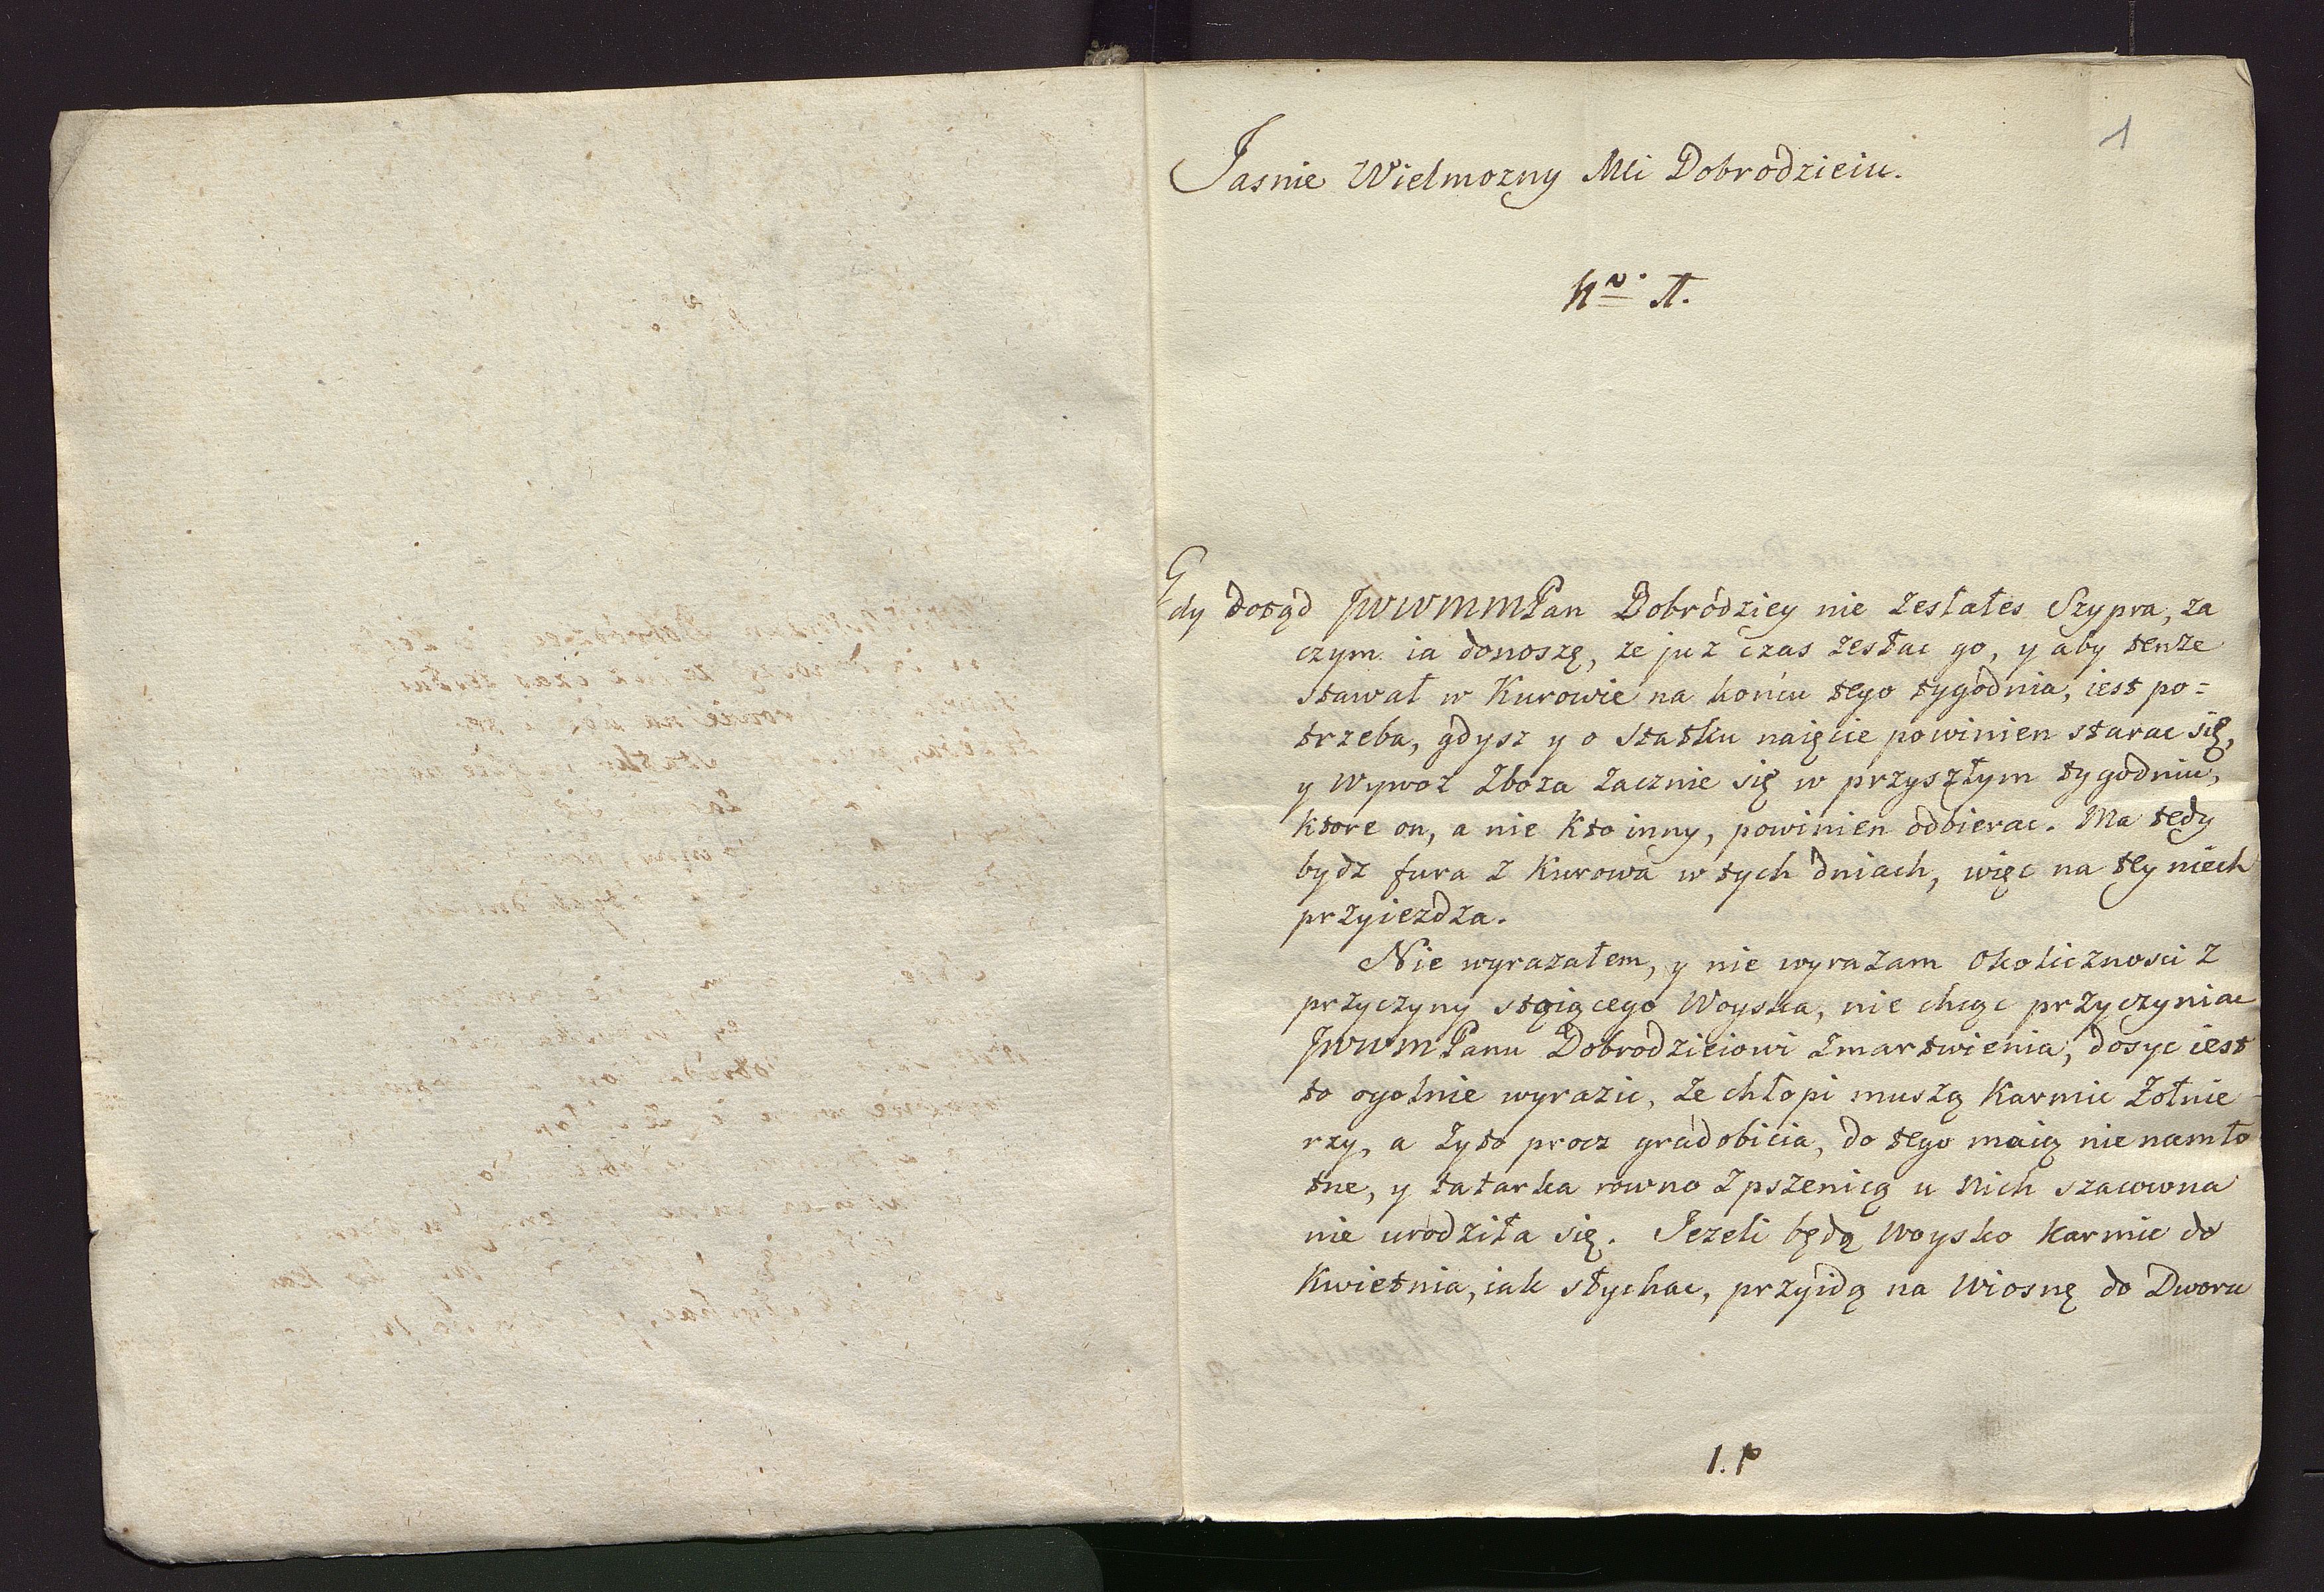 1
Jasnie Wielmozny Mci Dobrodzieiu.
Nro. A.
Gdy dotąd JWWMMPan Dobródziey nie zesłałes Szypra, za
czym ia donoszę, ze juz czas zesłac go, y aby tenze
stawał w Kurowie na końcu tego tygodnia, iest po=
trzeba, gdysz y o statku naięcie powinien starac się,
y wywoz zboza zacznie się w przyszłym tygodniu,
ktore on, a nie kto inny, powinien odbierac. Ma tedy
bydz fura z Kurowa w tych dniach, więc na tey niech
przyiezdza.
Nie wyrazałem, y nie wyrazam okolicznosci z
przyczyny stoiącego Woyska, nie chcąc przyczyniac
JWWMPanu Dobrodzieiowi zmartwienia, dosyc iest
to ogolnie wyrazic, ze chłopi muszą karmic zołnie
rzy, a zyto procz gradobicia, do tego maią nie namło
tne, y tatarka rowno z pszenicą u nich szacowna
nie urodziła się. Jezeli będą Woysko karmic do
Kwietnia, iak słychac, przyidą na wiosnę do Dworu
1. P